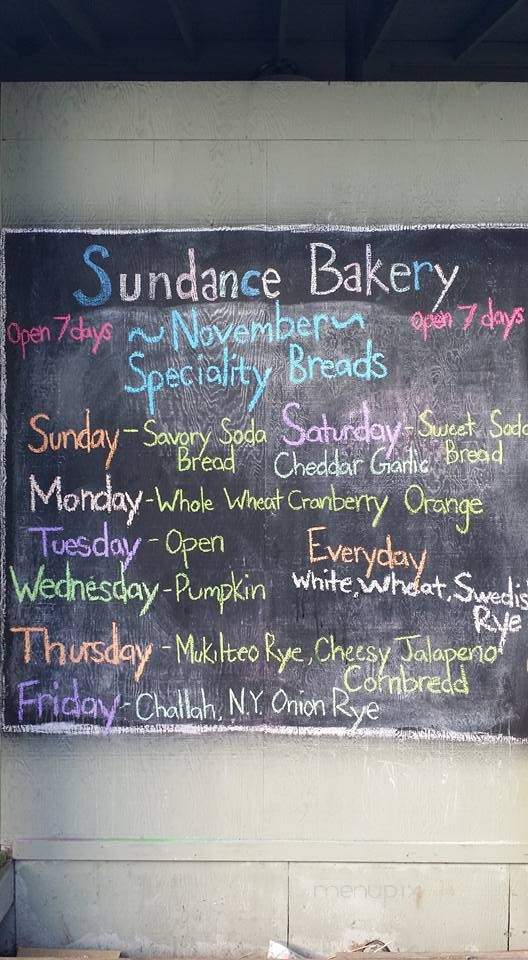 Sundance Bakery
Open 7 days ~November~ open 7 days
Speciality Breads
Sunday - Savory Soda Bread
Saturday - Sweet Soda Bread
Cheddar Garlic
Monday - Whole Wheat Cranberry Orange
Tuesday - Open
Everyday
White, Wheat, Swedis
Rye
Wednesday - Pumpkin
Thursday - Mukilteo Rye, Cheesy Jalapeno
Cornbredd
Friday - Challah, N.Y. Onion Rye
menupix